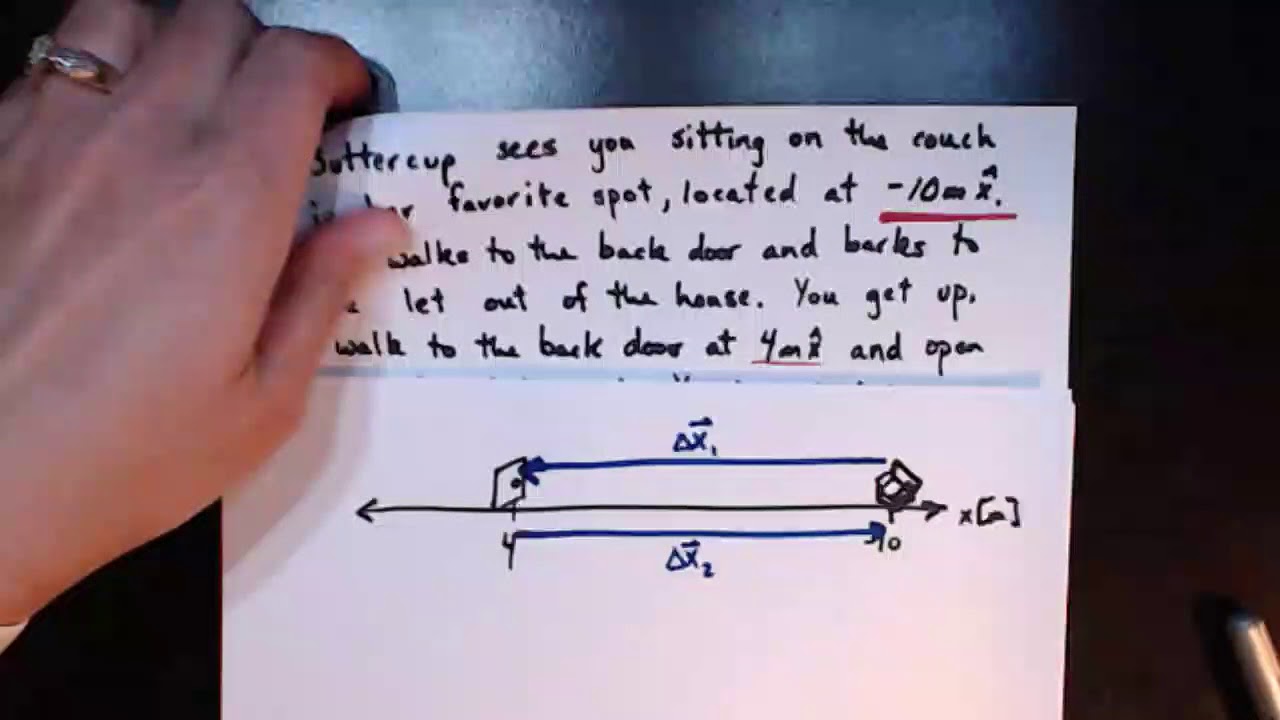 Buttercup sees you sitting on the couch
favorite spot, located at -10m x̂.
walks to the back door and barks to
let out of the house. You get up,
walk to the back door at 4m x̂ and open
Δx⃗₁
x[m]
4
10
Δx⃗₂